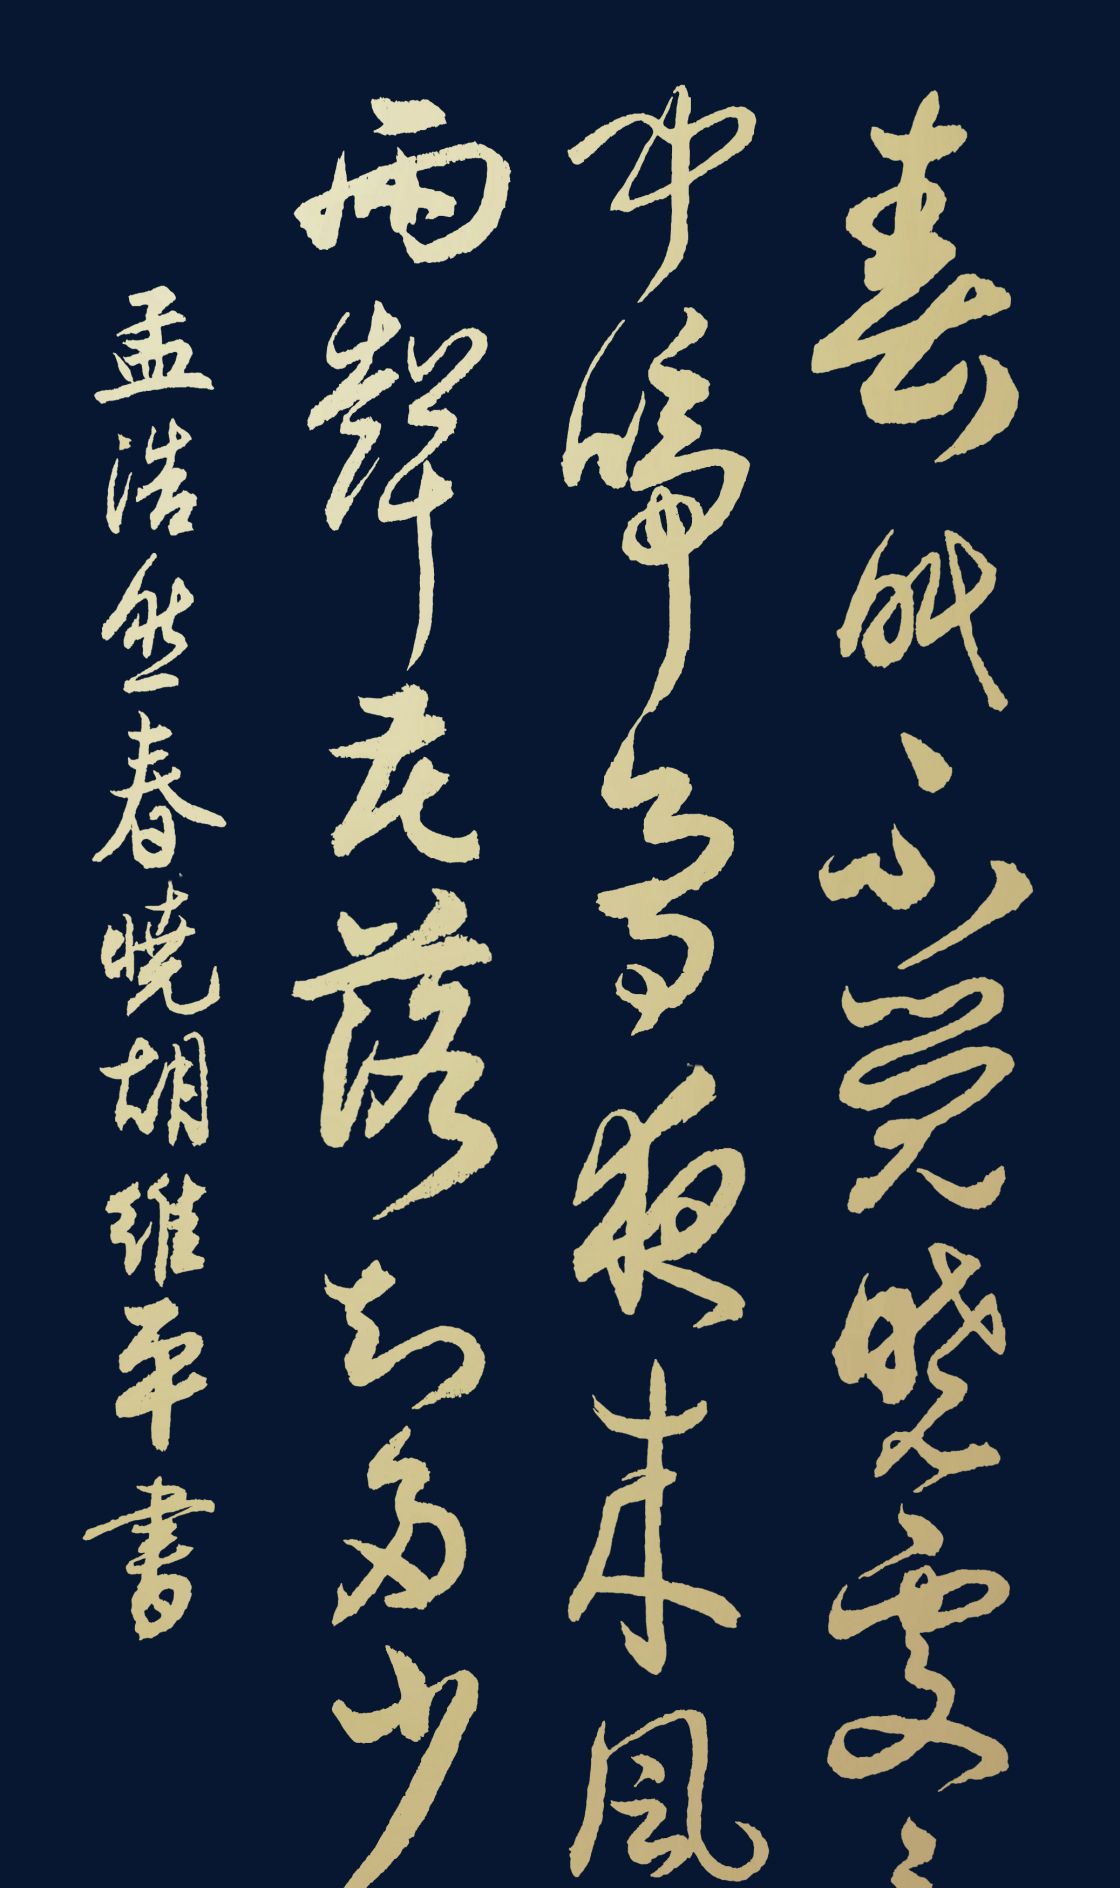 春眠不覺曉處々
聞啼鳥夜來風
雨聲花落知多少
孟浩然春曉胡維平書